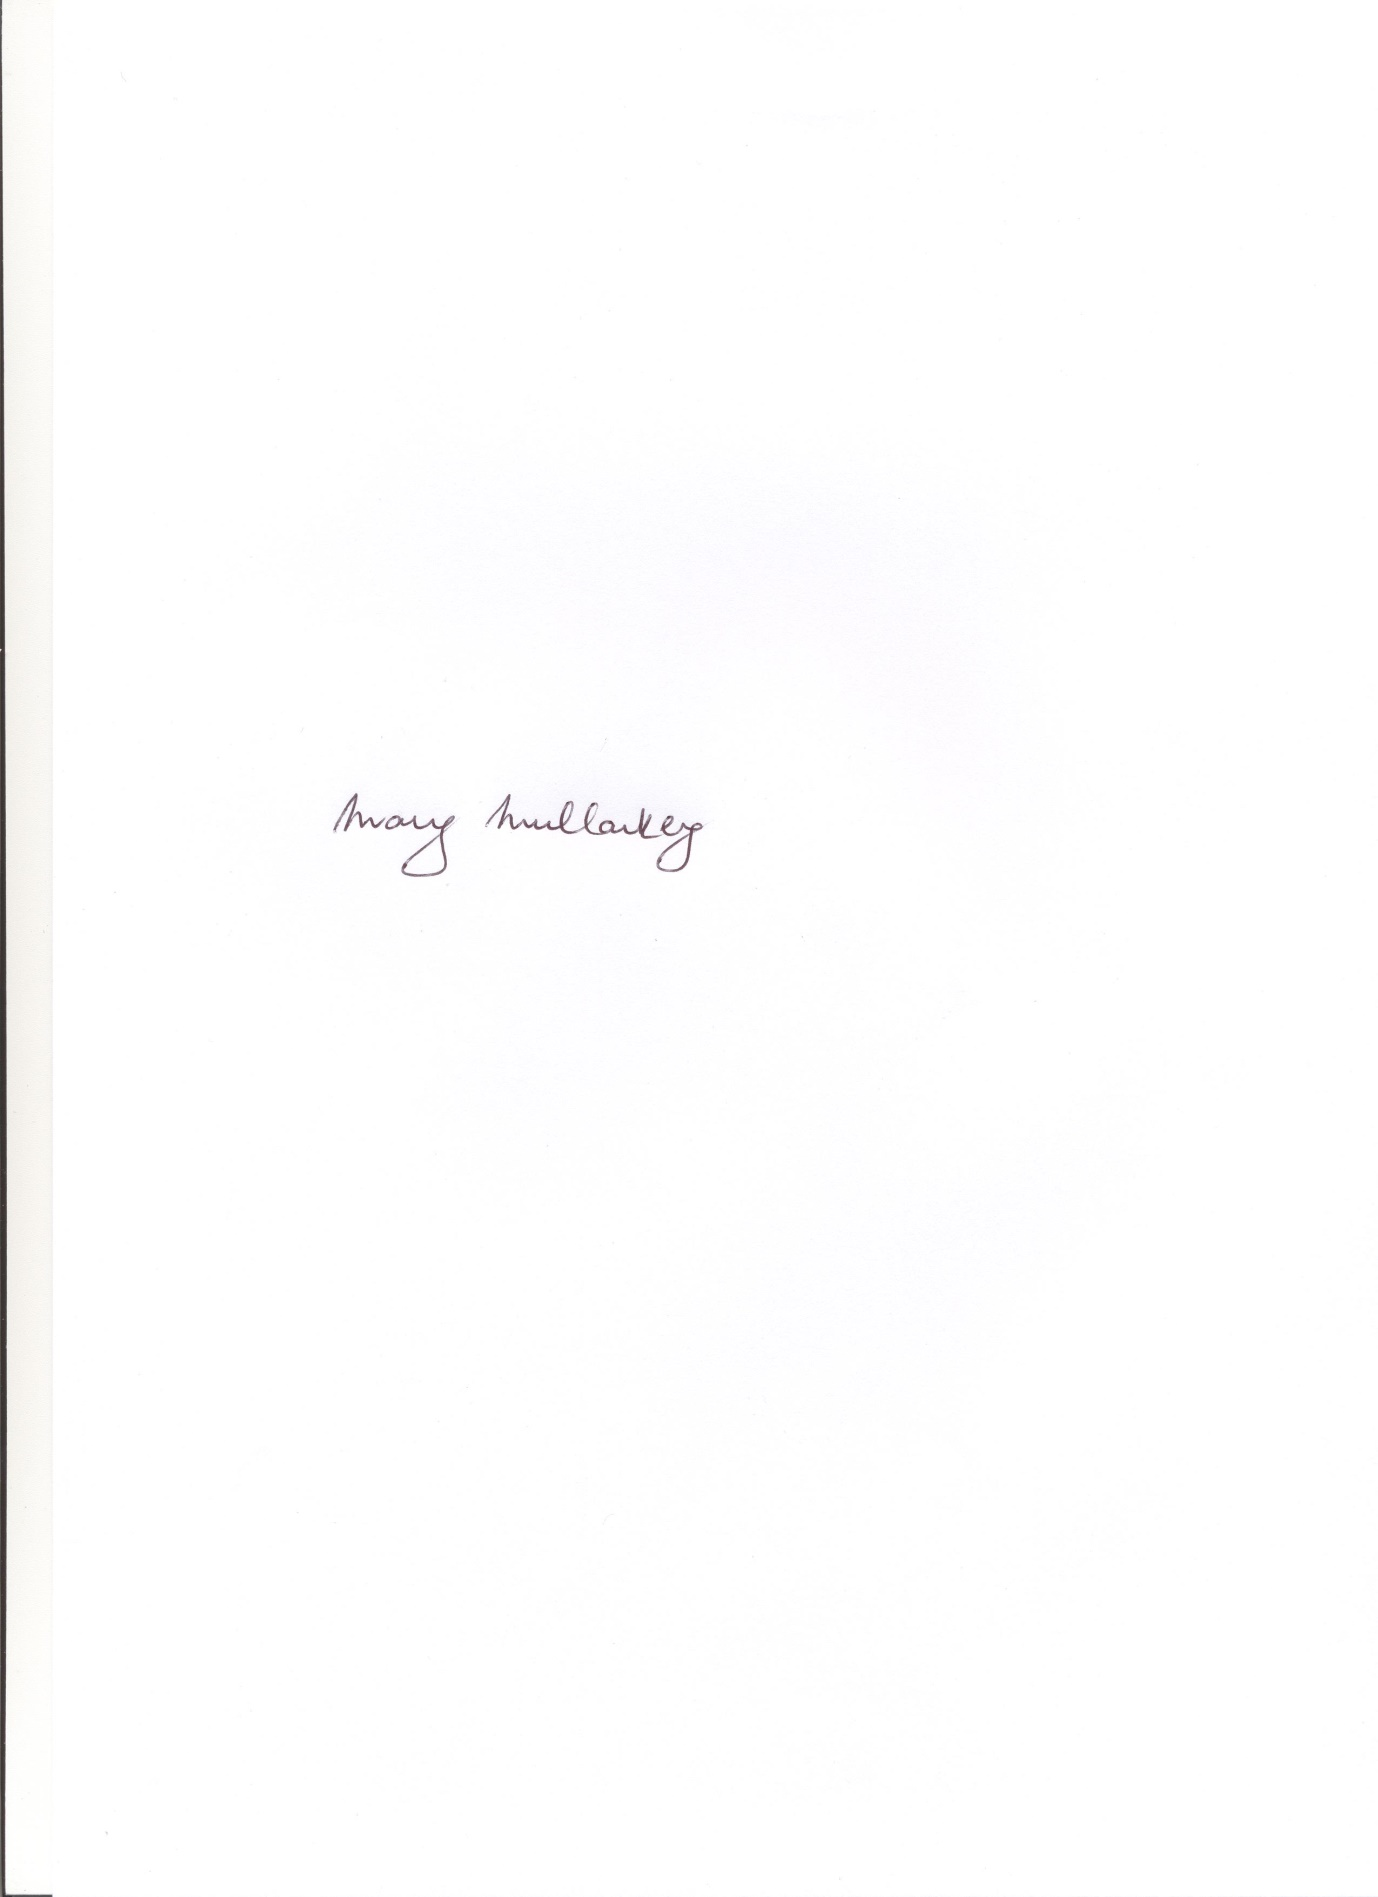 Mary Mullarkey